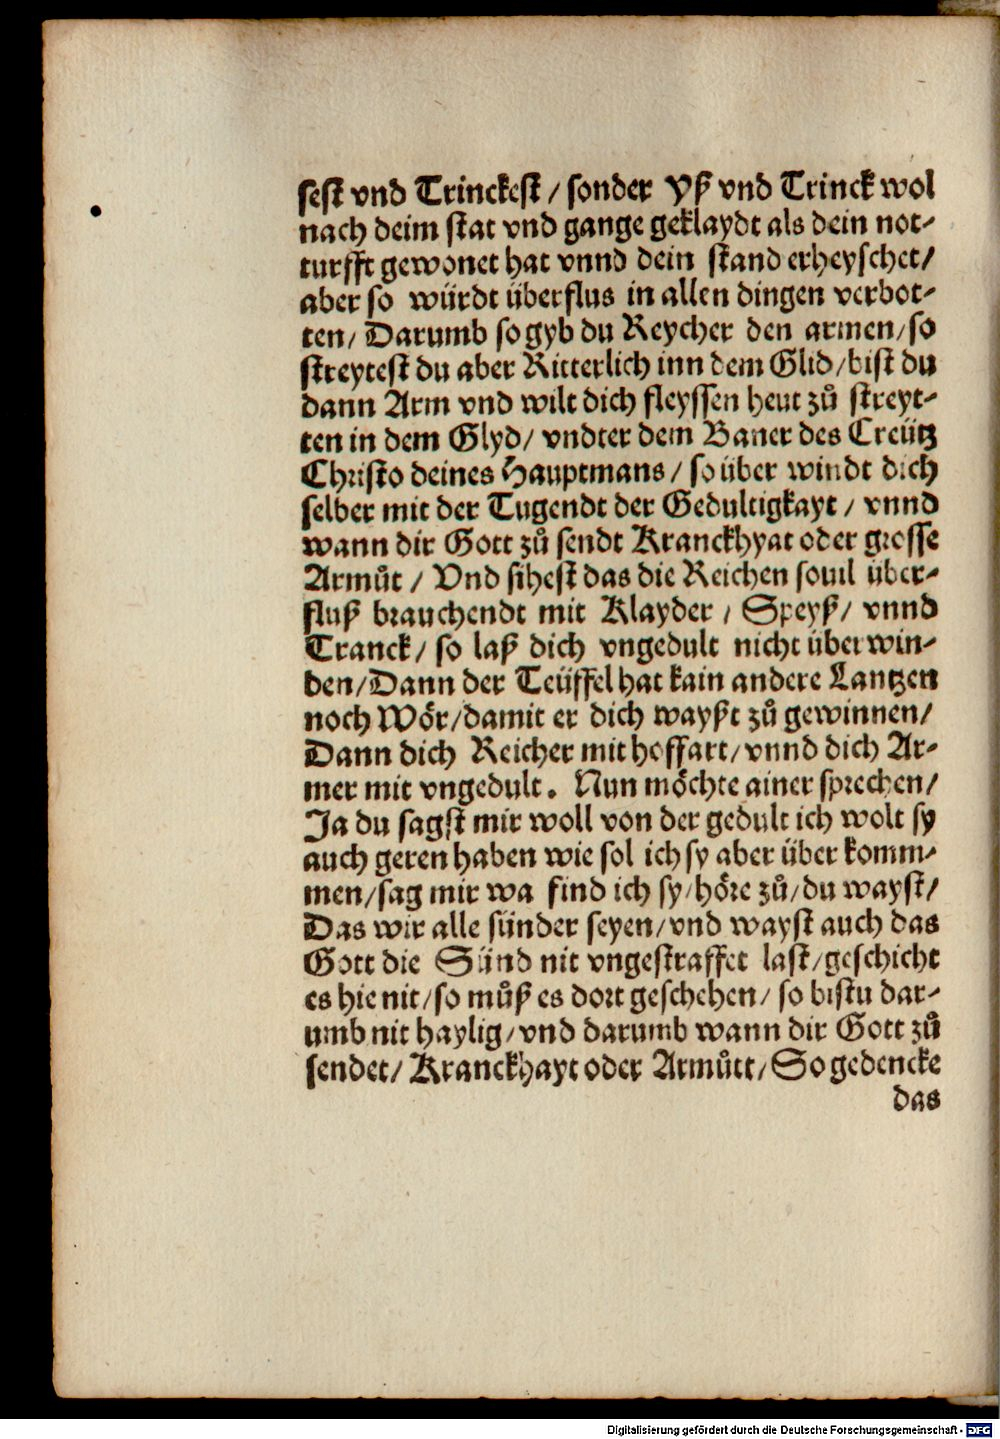 sest vnd Trinckest / sonder Yß vnd Trinck wol
nach deim stat vnd gange geklaydt als dein not-
turfft gewonet hat vnnd dein stand erheyschet/
aber so würdt überflus in allen dingen verbot-
ten/ Darumb so gyb du Reycher den armen/so
streytest du aber Ritterlich inn dem Glid/bist du
dann Arm vnd wilt dich fleyssen heut zů streyt-
ten in dem Glyd/ vndter dem Baner des Creütz
Christo deines Hauptmans/ so über windt dich
selber mit der Tugendt der Gedultigkayt / vnnd
wann dir Gott zů sendt Kranckhyat oder grosse
Armůt / Vnd sihest das die Reichen souil über-
fluß brauchendt mit Klayder / Speyß/ vnnd
Tranck/ so laß dich vngedult nicht überwin-
den/Dann der Teüffel hat kain andere Lantzen
noch Wör/damit er dich wayßt zů gewinnen/
Dann dich Reicher mit hoffart/vnnd dich Ar-
mer mit vngedult. Nun möchte ainer sprechen/
Ja du sagst mir woll von der gedult ich wolt sy
auch geren haben wie sol ich sy aber über komm-
men/sag mir wa find ich sy/höre zů/du wayst/
Das wir alle sünder seyen/vnd wayst auch das
Gott die Sünd nit vngestraffet last/geschicht
es hie nit/so můß es dort geschehen/ so bistu dar-
umb nit haylig/vnd darumb wann dir Gott zů
sendet/ Kranckhayt oder Armůtt/So gedencke
das
Digitalisierung gefördert durch die Deutsche Forschungsgemeinschaft - DFG